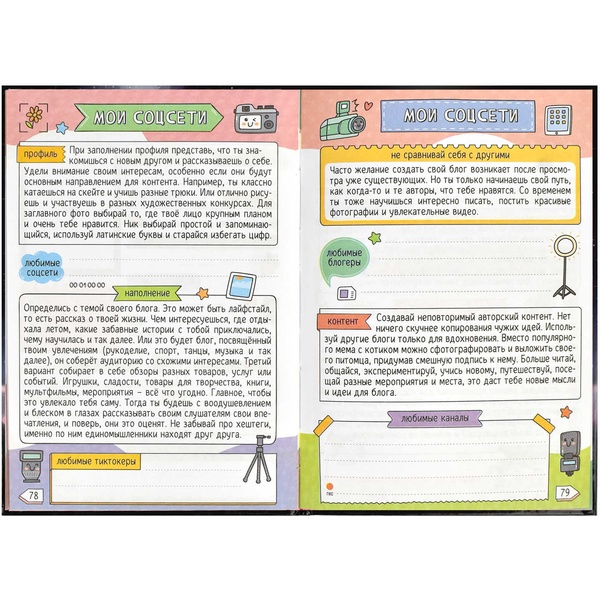 МОИ СОЦСЕТИ
профиль
При заполнении профиля представь, что ты зна-
комишься с новым другом и рассказываешь о себе.
Удели внимание своим интересам, особенно если они будут
основным направлением для контента. Например, ты классно
катаешься на скейте и учишь разные трюки. Или отлично рису-
ешь и участвуешь в разных художественных конкурсах. Для
заглавного фото выбирай то, где твоё лицо крупным планом
и очень тебе нравится. Ник выбирай простой и запоминаю-
щийся, используй латинские буквы и старайся избегать цифр.
любимые
соцсети
00:01:00:00
наполнение
Определись с темой своего блога. Это может быть лайфстайл,
то есть рассказ о твоей жизни. Чем интересуешься, где отды-
хала летом, какие забавные истории с тобой приключались,
чему научилась и так далее. Или это будет блог, посвящённый
твоим увлечениям (рукоделие, спорт, танцы, музыка и так
далее), он соберёт аудиторию со схожими интересами. Третий
вариант собирает в себе обзоры разных товаров, услуг или
событий. Игрушки, сладости, товары для творчества, книги,
мультфильмы, мероприятия – всё что угодно. Главное, чтобы
это увлекало тебя саму. Тогда ты будешь с воодушевлением
и блеском в глазах рассказывать своим слушателям свои впе-
чатления, и поверь, они это оценят. Не забывай про хештеги,
именно по ним единомышленники находят друг друга.
любимые тиктокеры
78
МОИ СОЦСЕТИ
не сравнивай себя с другими
Часто желание создать свой блог возникает после просмо-
тра уже существующих. Но ты только начинаешь свой путь,
как когда-то и те авторы, что тебе нравятся. Со временем
ты тоже научишься интересно писать, постить красивые
фотографии и увлекательные видео.
любимые
блогеры
контент
Создавай неповторимый авторский контент. Нет
ничего скучнее копирования чужих идей. Исполь-
зуй другие блоги только для вдохновения. Вместо популярно-
го мема с котиком можно сфотографировать и выложить свое-
го питомца, придумав смешную подпись к нему. Больше читай,
общайся, экспериментируй, учись новому, путешествуй, посе-
щай разные мероприятия и места, это даст тебе новые мысли
и идеи для блога.
любимые каналы
REC
79